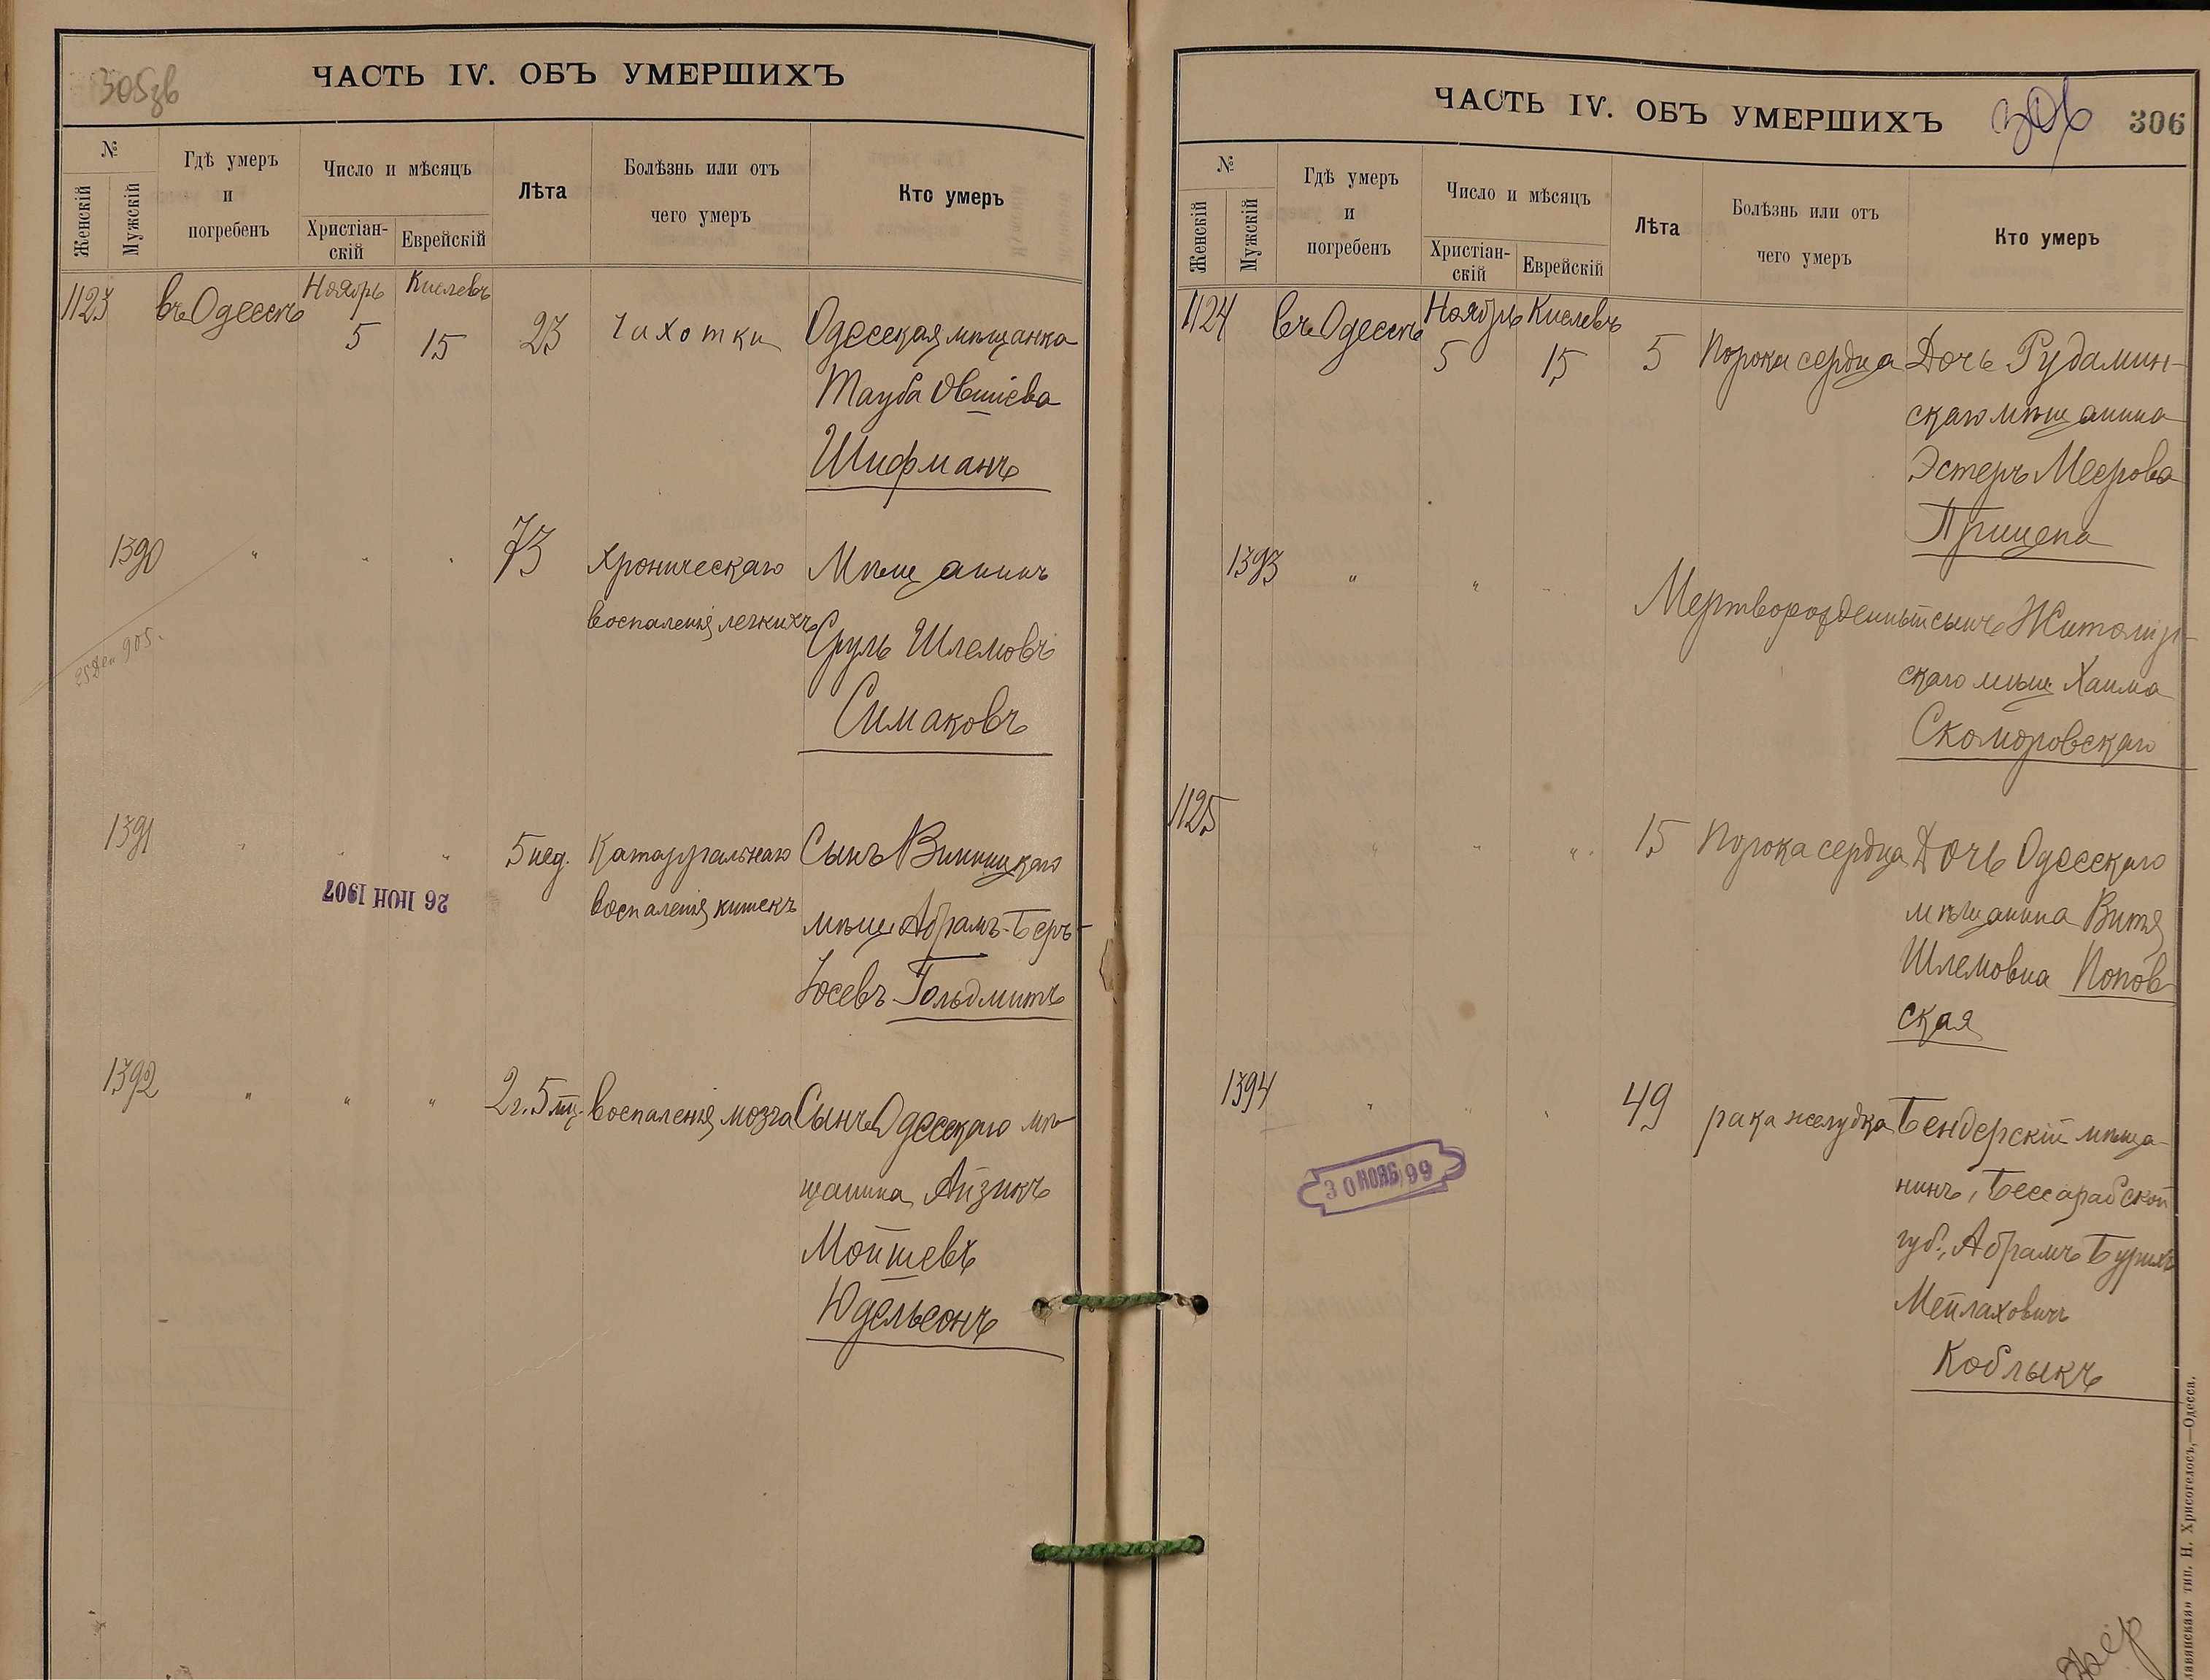 305 зв
ЧАСТЬ IV. ОБЪ УМЕРШИХЪ
№
Женскій
Мужскій
Гдѣ умеръ
и
погребенъ
Число и мѣсяцъ
Христіан-
скій
Еврейскій
Лѣта
Болѣзнь или отъ
чего умеръ
Кто умеръ
1123 въ Одессѣ Ноябрь 5 Кислевъ 15 23 Чахотки Одесская мѣщанка
Тауба Овшіева
Шифманъ
1390 " " " 73 Хроническаго Мѣщанинъ
воспаленія легкихъ Сруль Шлемовъ
Симаковъ
25 Дек 905.
1391 " " " 5 нед. Катарральнаго Сынъ Винницкаго
воспаленія кишекъ мѣщ. Абрамъ-Беръ-
26 ІЮН 1907
Іосевъ Гольдмитъ
1392 " " " 2 г. 5 мц. воспаленія мозга Сынъ Одесскаго мѣ-
щанина Айзикъ
Мойшевъ
Юдельсонъ
ЧАСТЬ IV. ОБЪ УМЕРШИХЪ
306
306
№
Женскій
Мужскій
Гдѣ умеръ
и
погребенъ
Число и мѣсяцъ
Христіан-
скій
Еврейскій
Лѣта
Болѣзнь или отъ
чего умеръ
Кто умеръ
1124 въ Одессѣ Ноябрь 5 Кислевъ 15 5 Порока сердца Дочь Рудамин-
скаго мѣщанина
Эстеръ Меерова
Прицепа
1393 " " " Мертворожденный сынъ Житомір-
скаго мѣщ. Хаима
Скоморовскаго
1125 " " " 15 Порока сердца Дочь Одесскаго
мѣщанина Витя
Шлемовна Попов-
ская
1394 " " " 49 рака желудка Бендерскій мѣща-
нинъ, Бессарабской
30 НОЯБ 99
губ., Абрамъ Бурихъ
Мейлаховичъ
Коблыкъ
тип. Н. Хрисогелосъ,—Одесса.